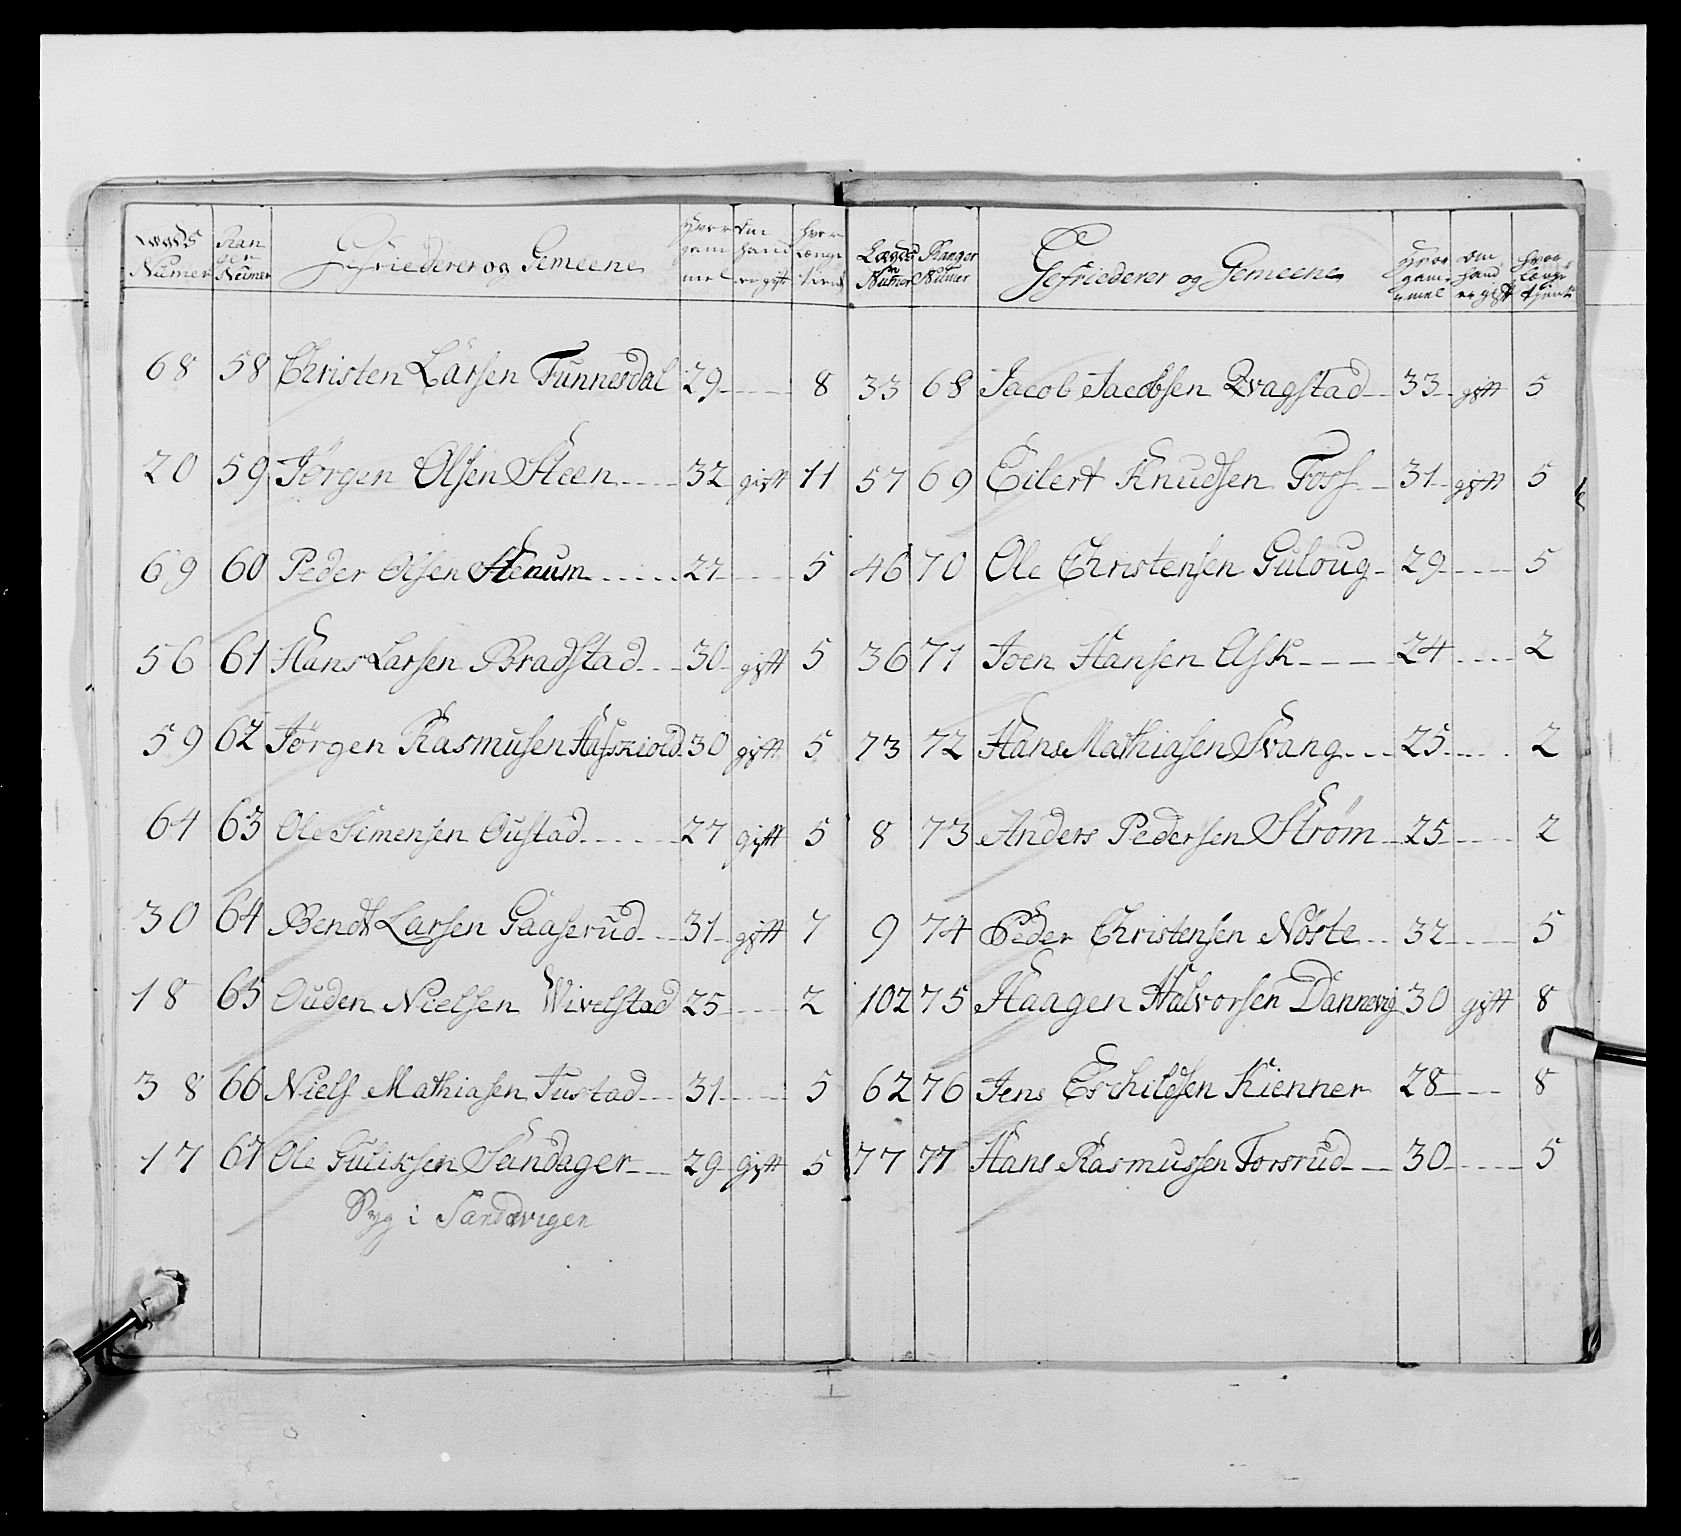 Lægds Numer Ranger Numer Gefriederer og Gemeene Hvor gammel Om hand er gift hvor Længe tient
68 58 Christen Larsen Tunnesdal 29 - - - - 8
20 59 Jørgen Olsen Steen - - - - 32 gift 11
69 60 Peder Olsen Stenum - - - - - - 27 - - - - 5
56 61 Hans Larsen Bradstad - - - 30 - gift 5
59 62 Jørgen Rasmusen Hafskiold 30 gift 5
64 63 Ole Simensen Oustad - - - - - - 27 gift 5
30 64 Bendt Larsen Gaaserud - - - 31 - gift 7
18 65 Ouden Nielsen Wivelstad 25 - - - - 2
38 66 Niels Mathiasen Tustad - - - 31 - - - - - 5
17 67 Ole Guliksen Sandager - - - 29 gift 5
Syg i Sandvigen
Lægds Numer Ranger Numer Gefriederer og Gemeene Hvor gammel Om hand er gift hvor Længe tjent
33 68 Jacob Jacobsen Qvagstad - - 33 - gift 5
57 69 Eilert Knudsen Foss - - 31 - gift 5
46 70 Ole Christensen Guloug - 29 - - - - 5
36 71 Joen Hansen Ask - - - - 24 - - - - 2
73 72 Hans Mathiasen Svang - - - 25 - - - - 2
8 73 Anders Pedersen Strøm - 25 - - - - 2
9 74 Peder Christensen Nøste - - 32 - - - - 5
102 75 Haagen Halvorsen Dannevig 30 gift 8
62 76 Jens Eschildsen Kienner 28 - - - 8
77 77 Hans Rasmussen Torsrud - - - 30 - - - - - 5